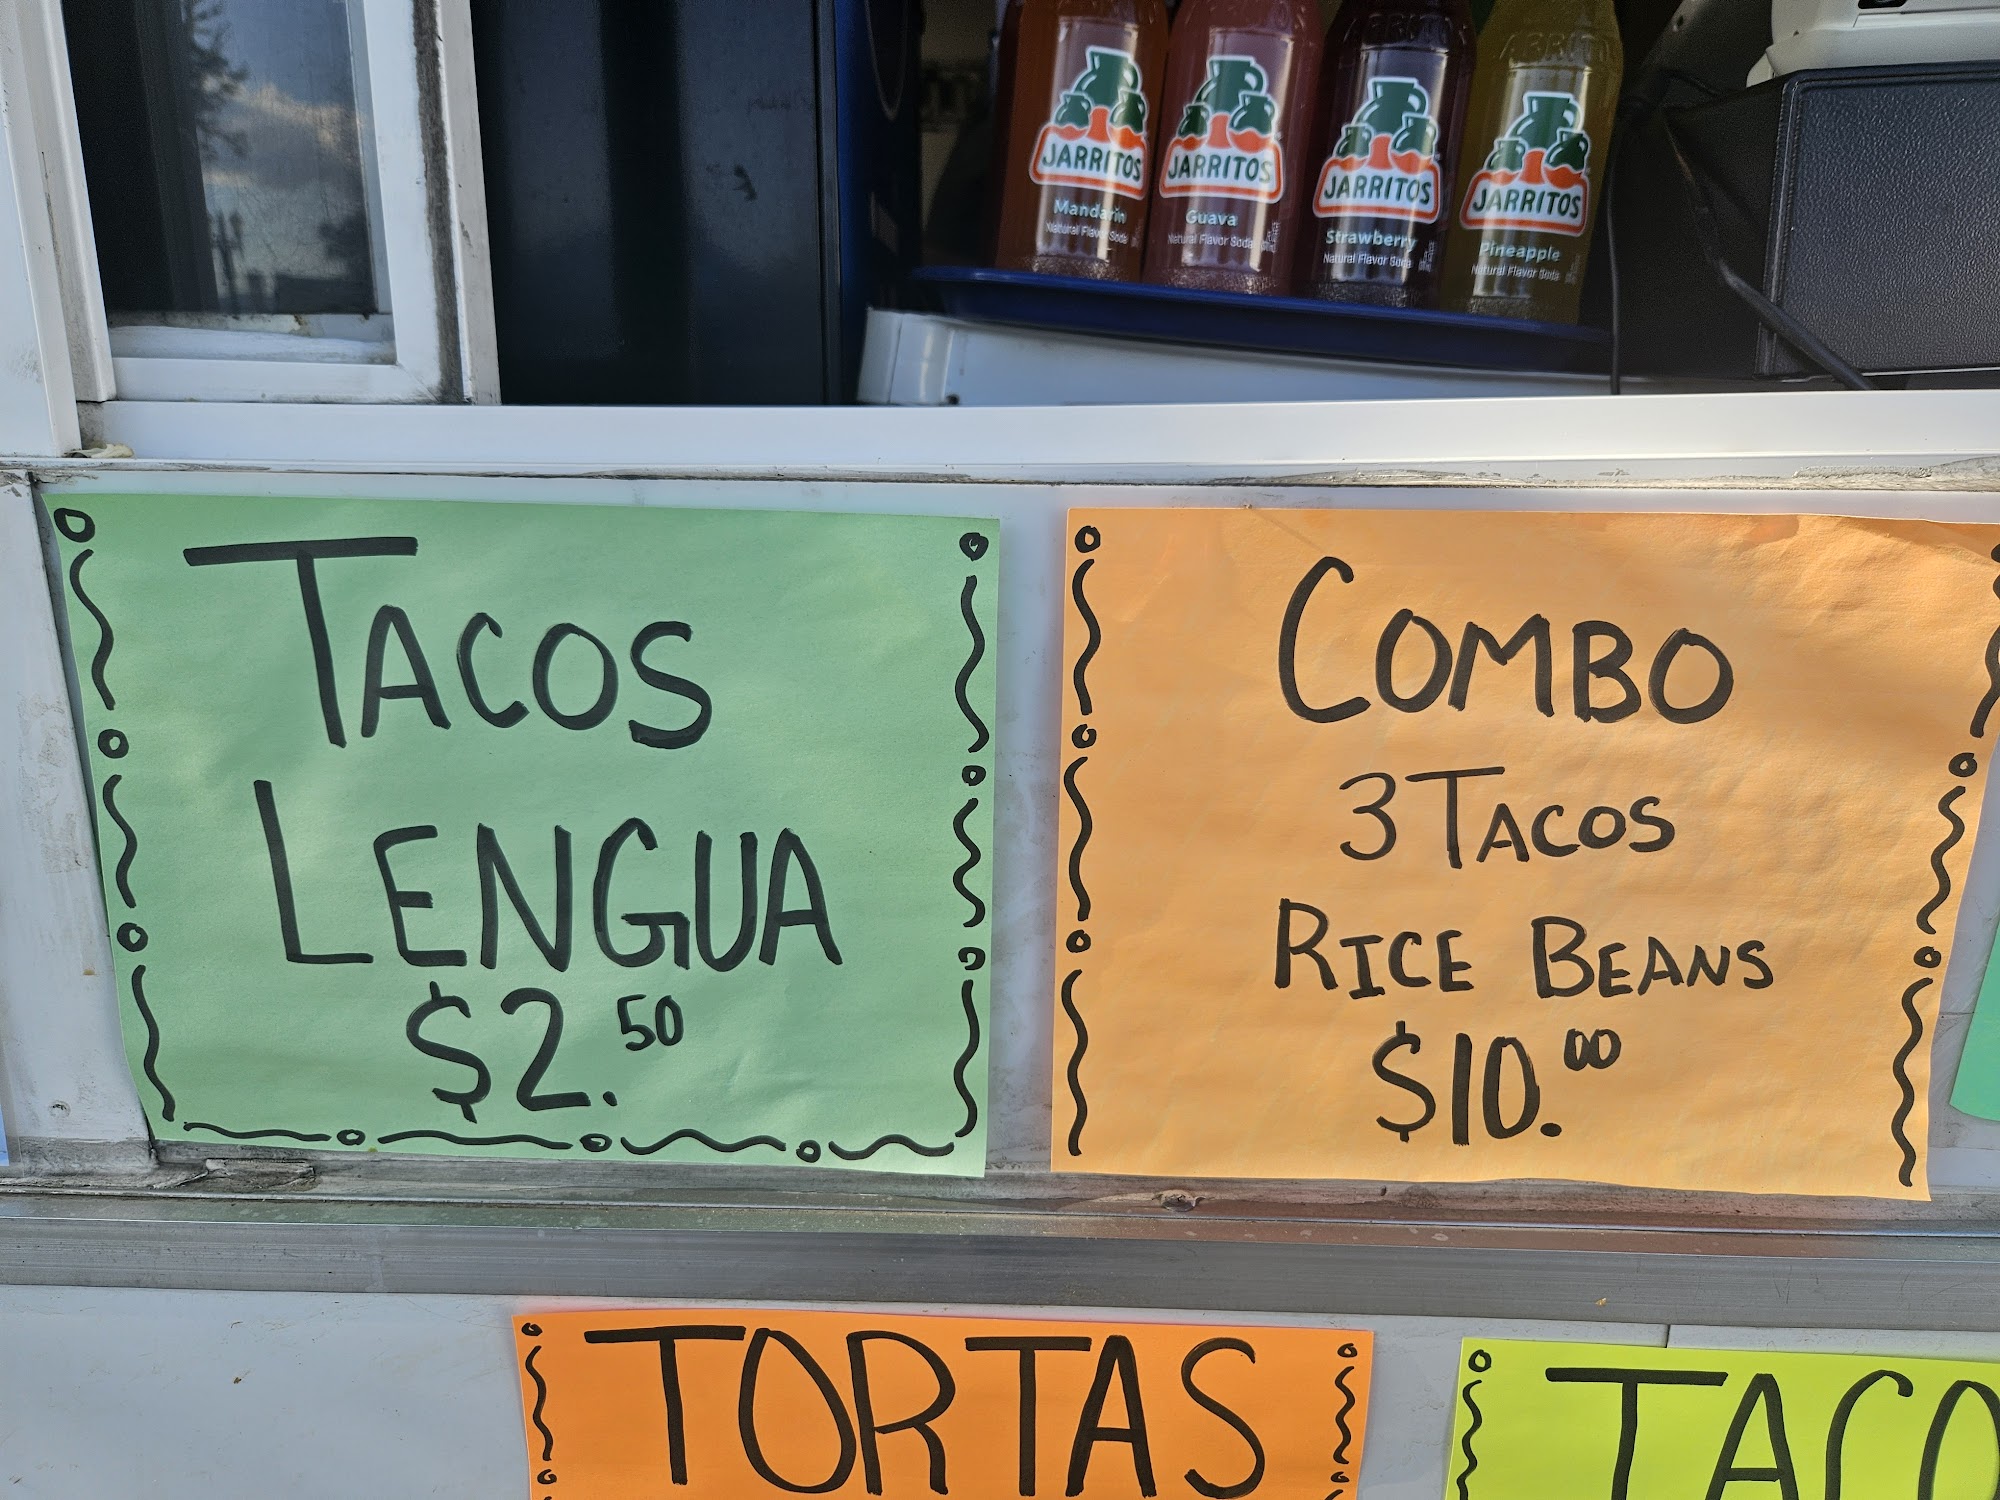 JARRITOS
Mandarin
Natural Flavor Soda
JARRITOS
Guava
Natural Flavor Soda
JARRITOS
Strawberry
Natural Flavor Soda
JARRITOS
Pineapple
Natural Flavor Soda
TACOS
LENGUA
$2.50
COMBO
3 TACOS
RICE BEANS
$10.00
TORTAS
TACO